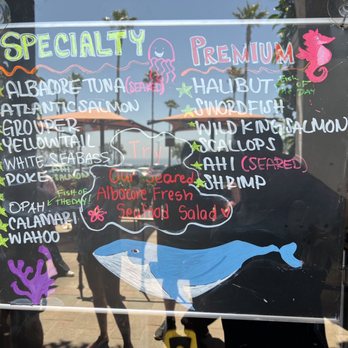 SPECIALTY
ALBACORE TUNA (SEARED)
ATLANTIC SALMON
GROUPER
YELLOWTAIL
WHITE SEABASS
POKE AHI SALMON
FISH OF THE DAY!
OPAH
CALAMARI
WAHOO
Try
Our Seared
Albacore Fresh
Seafood Salad
PREMIUM
HALIBUT FISH OF THE DAY
SWORDFISH
WILD KING SALMON
SCALLOPS
AHI (SEARED)
SHRIMP